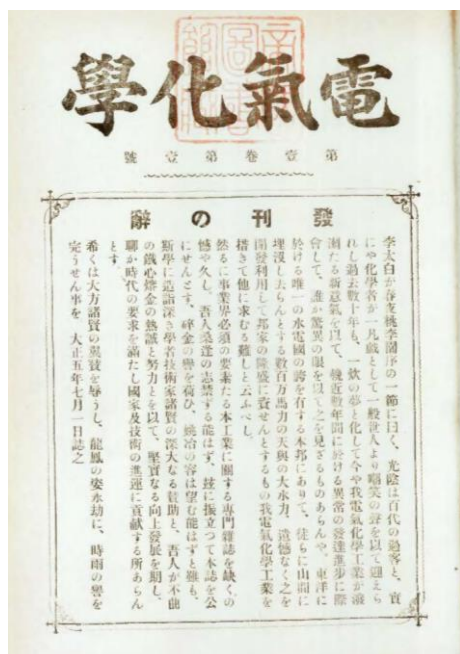 電氣化學
第壹卷第壹號
發刊の辭
李太白が春夜桃李園序の一節に曰く、光陰は百代の過客と、實
にや化學者が一凡戯として一般世人より嘲笑の聲を以て迎えら
れし過去數十年も、一炊の夢と化して今や我電氣化學工業が溌
溂たる新意氣を以て、輓近數年間に於ける異常の發達進步に際
會して、誰か驚異の眼を以て之を見ざるものあらんや。東洋に
於ける唯一の水電國の誇を有する本邦にありて、徒らに山間に
埋沒し去らんとする數百万馬力の天與の大水力、遺憾なく之を
開發利用して邦家の隆盛に資せんとするもの我電氣化學工業を
措きて他に求むる難しと云ふべし。
然るに事業界必須の要素たる本工業に關する專門雜誌を缺くの
憾や久し、吾人桑蓬の志禁ずる能はず、玆に振立つて本誌を公
にせんとす、碎金の譽を荷ひ、鎔冶の容は望む能はずと雖も、
斯學に造詣深き學者技術家諸賢の深大なる賛助と、吾人が不能
の鐵心鎔金の熱誠と努力とを以て、堅實なる向上發展を期し、
聊か時代の要求を滿たし國家及技術の進運に貢献する所あらん
とす。
希くは大方諸賢の翼賛を辱うし、龍鳳の姿永劫に、時雨の譽を
完うせん事を 大正五年七月一日誌之